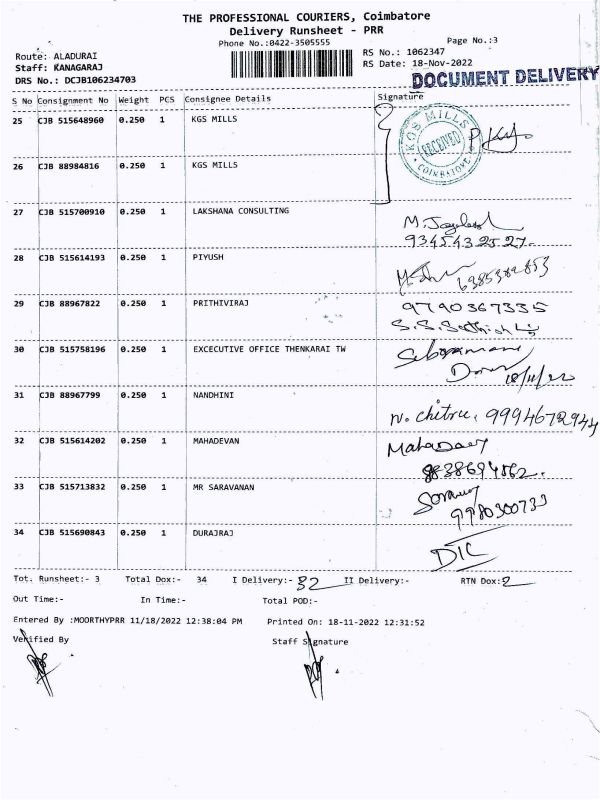 THE PROFESSIONAL COURIERS, Coimbatore
Delivery Runsheet - PRR
Phone No.:0422-3505555
Page No.:3
Route: ALADURAI
RS No.: 1062347
Staff: KANAGARAJ
RS Date: 18-Nov-2022
DRS No.: DCJB106234703
DOCUMENT DELIVERY
S No Consignment No Weight PCS Consignee Details Signature
25 CJB 515648960 0.250 1 KGS MILLS
KGS MILLS RECEIVED COIMBATORE
26 CJB 88984816 0.250 1 KGS MILLS
27 CJB 515700910 0.250 1 LAKSHANA CONSULTING
9345432527
28 CJB 515614193 0.250 1 PIYUSH
6385382853
29 CJB 88967822 0.250 1 PRITHIVIRAJ 9790367335
S.S.
30 CJB 515758196 0.250 1 EXCECUTIVE OFFICE THENKARAI TW
18/11/22
31 CJB 88967799 0.250 1 NANDHINI
N. chitra, 9994672944
32 CJB 515614202 0.250 1 MAHADEVAN
33 CJB 515713832 0.250 1 MR SARAVANAN
34 CJB 515690843 0.250 1 DURAJRAJ
DIC
Tot. Runsheet:- 3 Total Dox:- 34 I Delivery:- 32 II Delivery:- RTN Dox:2
Out Time:- In Time:- Total POD:-
Entered By :MOORTHYPRR 11/18/2022 12:38:04 PM Printed On: 18-11-2022 12:31:52
Verified By Staff Signature